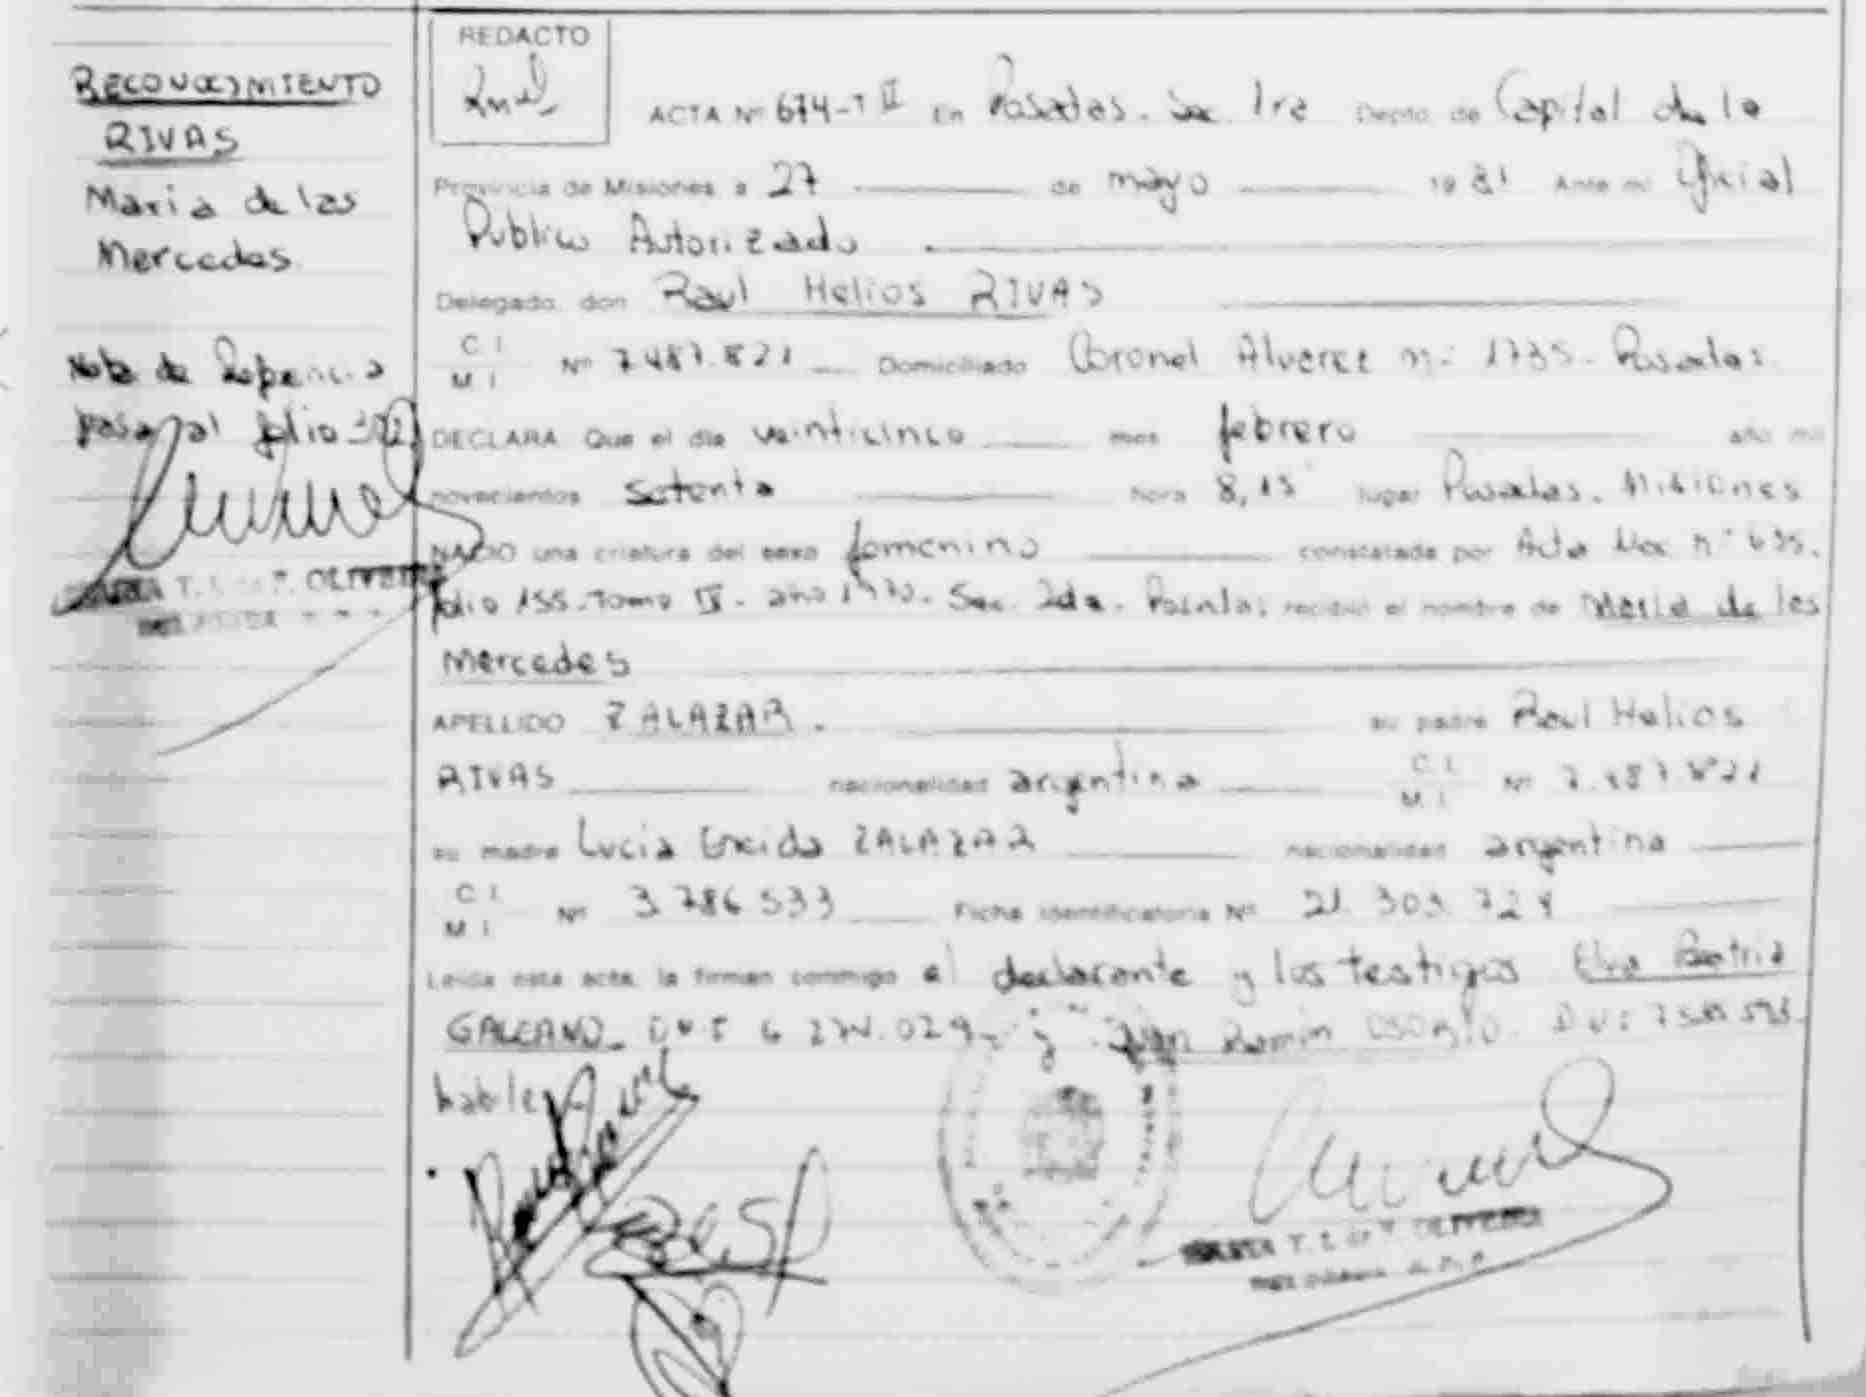 RECONOCIMIENTO
RIVAS
Maria de las
Mercedes
Nota de Referencia
pasa al folio
REDACTO
ACTA Nº 674-T II En Posadas. Sec. 1ra Depto. de Capital de la
Provincia de Misiones a 27 de mayo 1981 Ante mi Oficial
Publico Autorizado
Delegado, don Raul Helios RIVAS
C. I.
M. I.
Nº 7.487.821 Domiciliado Coronel Alvarez nº 1735. Posadas.
DECLARA: Que el día veinticinco mes febrero año mil
novecientos setenta hora 8,15 lugar Posadas. Misiones
NACIO una criatura del sexo femenino constatada por Acta Nac nº 635.
folio 155. Tomo IV. año 1970. Sec. 2da. Posadas; recibió el nombre de Maria de las
Mercedes
APELLIDO ZALAZAR. su padre Raul Helios
RIVAS nacionalidad argentina C. I.
M. I.
Nº 7.487.821
su madre Lucia ZALAZAR nacionalidad argentina
C. I.
M. I.
Nº 3.786.533 Ficha Identificatoria Nº 21.303.724
Leída esta acta, la firman conmigo el declarante y los testigos Elva Beatriz
GALEANO. y Juan Ramón
T. OLIVEIRA